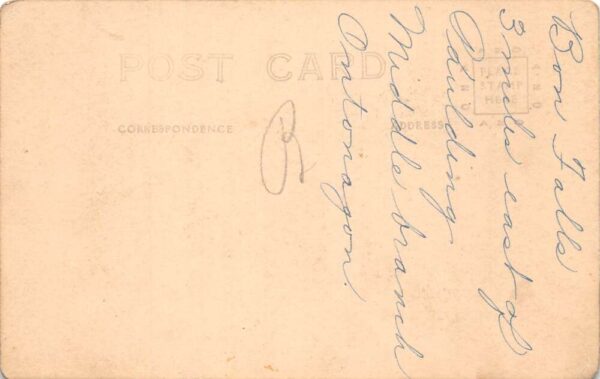 POST CARD
CORRESPONDENCE
ADDRESS
PLACE
STAMP
HERE
Bon Falls
3 miles east of
Paulding
Middle branch
Ontonagon.